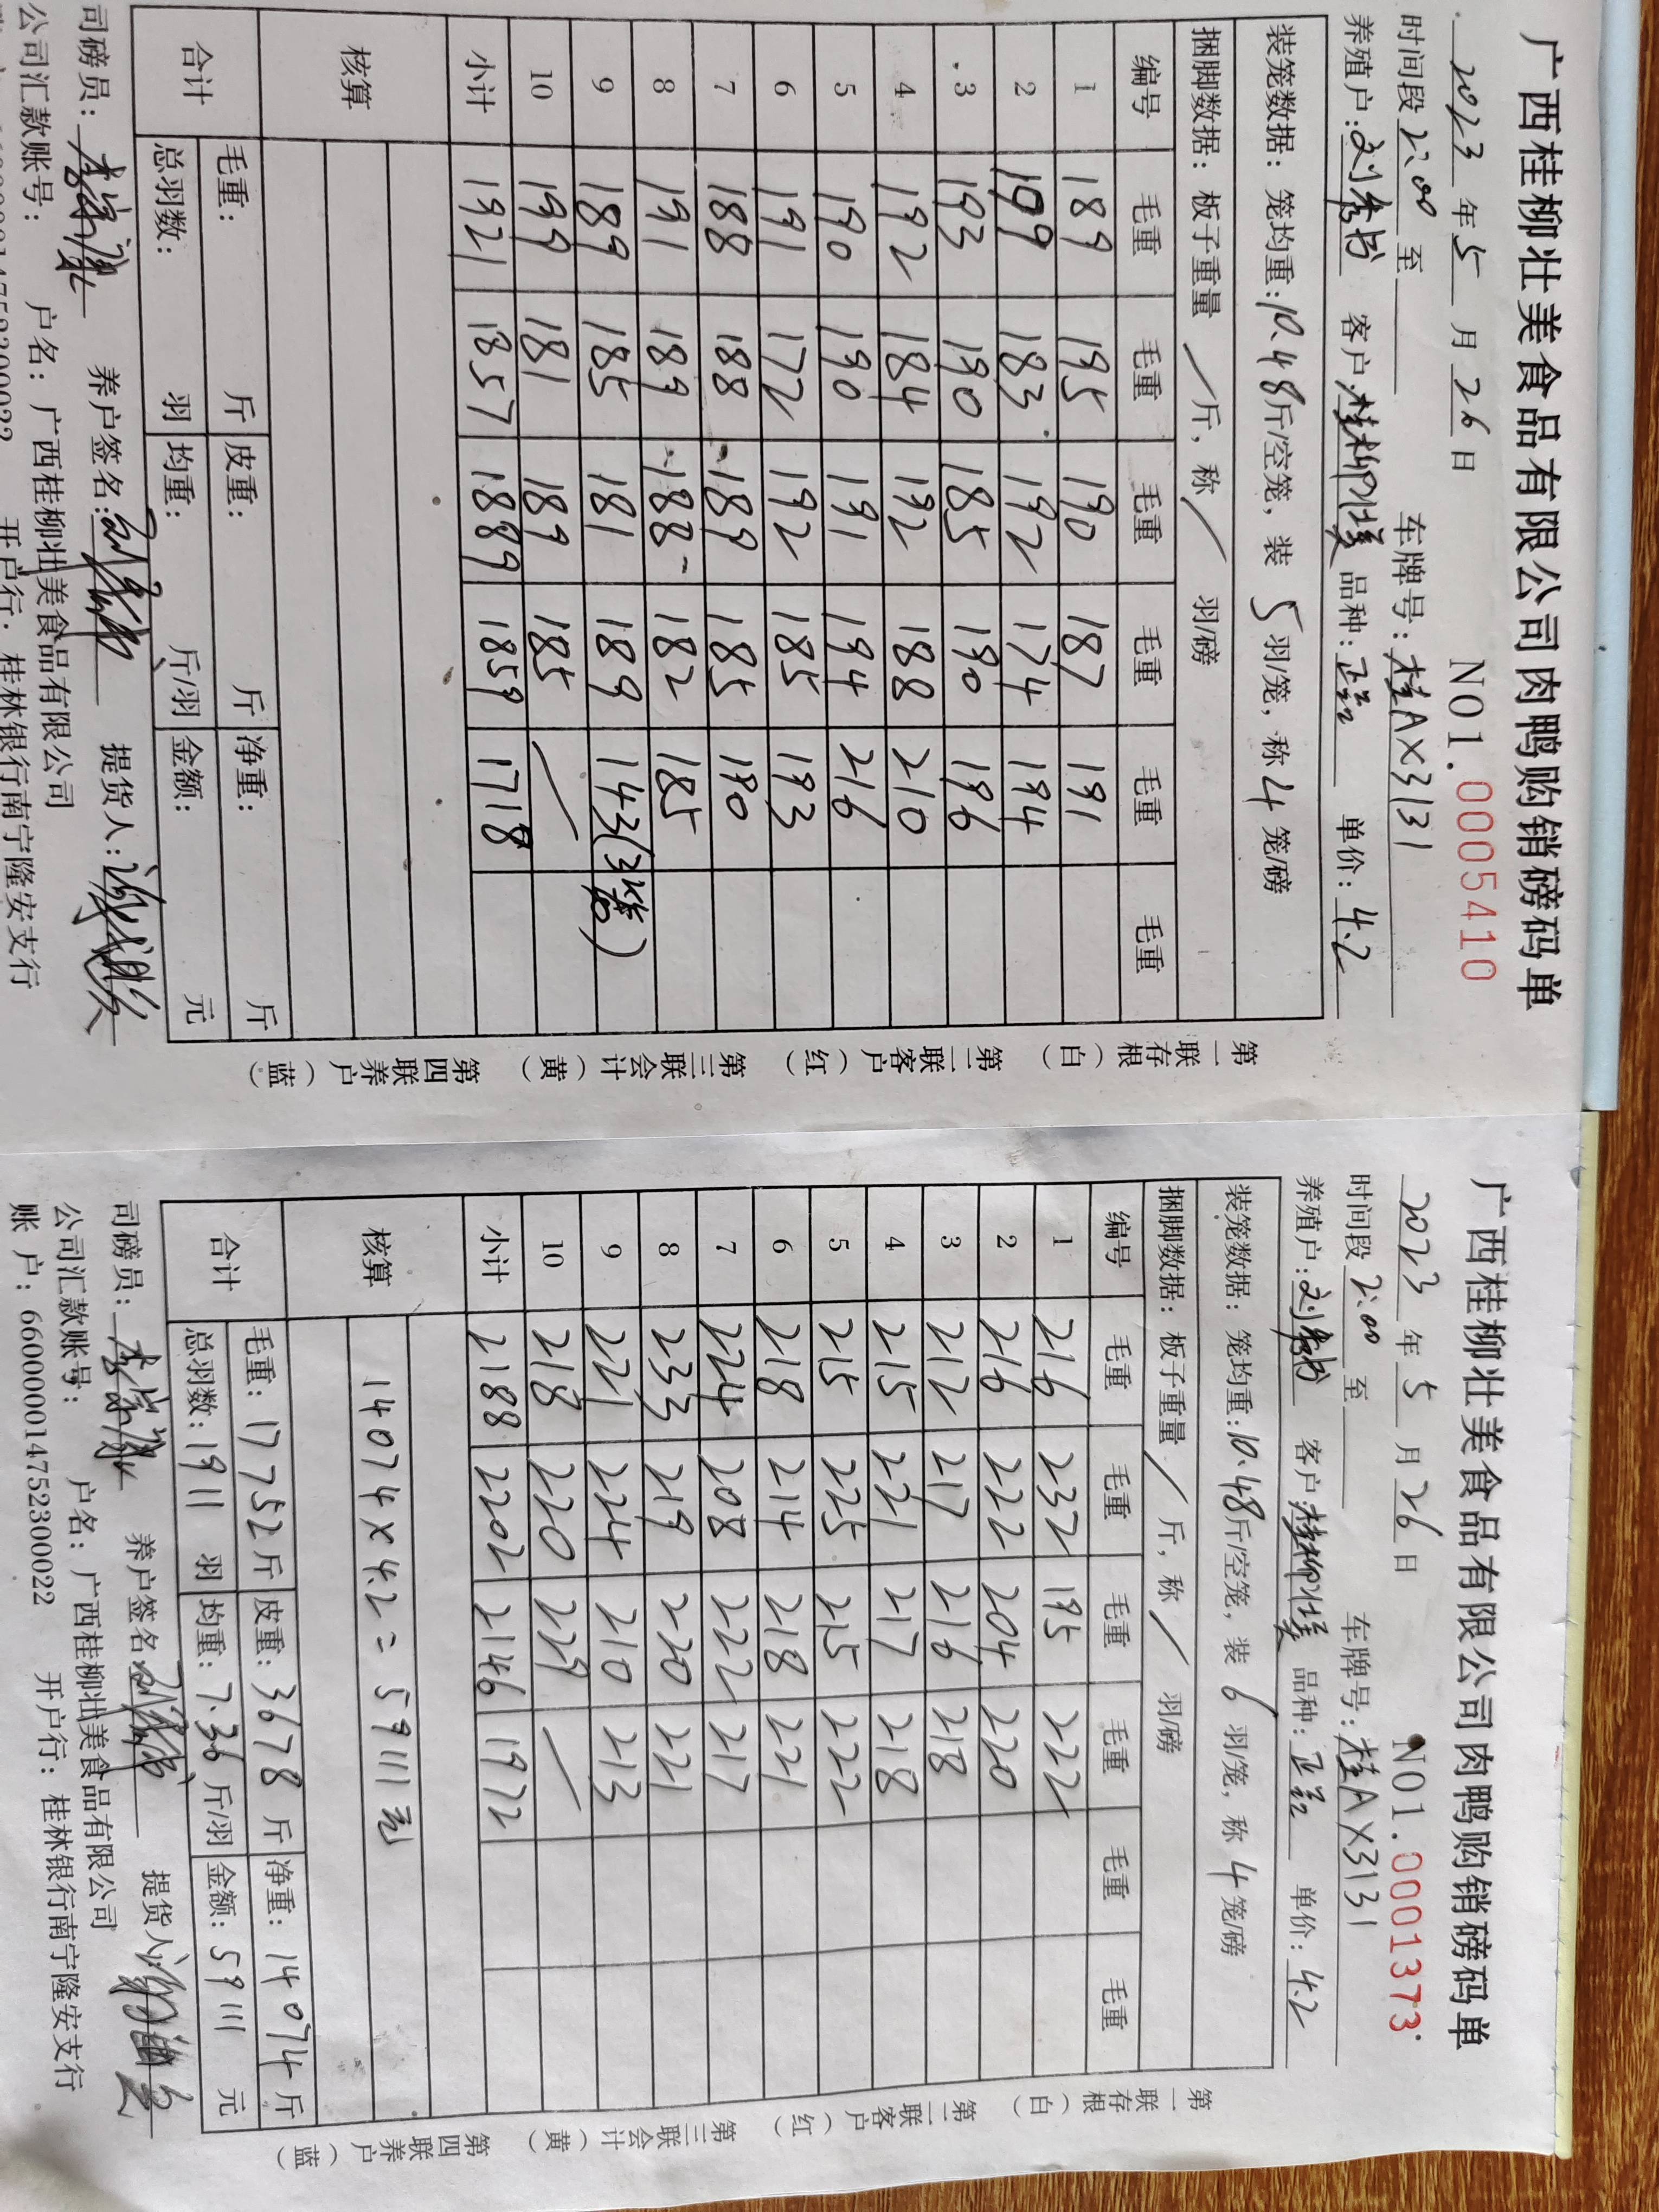 广西桂柳壮美食品有限公司肉鸭购销磅码单
2023年5月26日 NO1.0005410
时间段2:00至 车牌号:桂AX3131
养殖户: 客户:桂柳壮美 品种: 单价:4.2
装笼数据:笼均重:10.48斤/空笼,装5羽/笼,称4笼/磅
捆脚数据:板子重量/斤,称/羽/磅
编号 毛重 毛重 毛重 毛重 毛重 毛重
1 189 195 190 187 191
2 199 183 192 174 194
3 193 190 185 190 196
4 192 184 192 188 210
5 190 190 191 194 216
6 191 172 192 185 193
7 188 188 189 185 190
8 191 189 188 182 185
9 189 185 181 189 143(3笼)
10 199 181 189 185 /
小计 1921 1857 1889 1859 1718
核算
合计 毛重: 斤 皮重: 斤 净重: 斤
总羽数: 羽 均重: 斤/羽 金额: 元
司磅员: 养户签名: 提货人:
公司汇款账号: 户名:广西桂柳壮美食品有限公司
开户行:桂林银行南宁隆安支行
第一联存根(白) 第二联客户(红) 第三联会计(黄) 第四联养户(蓝)
广西桂柳壮美食品有限公司肉鸭购销磅码单
2023年5月26日 NO1.0001373
时间段2:00至 车牌号:桂AX3131
养殖户: 客户:桂柳壮美 品种: 单价:4.2
装笼数据:笼均重:10.48斤/空笼,装6羽/笼,称4笼/磅
捆脚数据:板子重量/斤,称/羽/磅
编号 毛重 毛重 毛重 毛重 毛重 毛重
1 216 232 195 222
2 216 222 204 220
3 212 217 216 218
4 215 221 217 218
5 215 225 215 222
6 218 214 218 221
7 224 208 222 217
8 233 219 220 221
9 221 224 210 213
10 218 220 229 /
小计 2188 2202 2146 1972
核算 14074×4.2=59111元
合计 毛重:17752斤 皮重:3678斤 净重:14074斤
总羽数:1911羽 均重:7.36斤/羽 金额:59111元
司磅员: 养户签名: 提货人:
公司汇款账号: 户名:广西桂柳壮美食品有限公司
账户:660000014752300022 开户行:桂林银行南宁隆安支行
第一联存根(白) 第二联客户(红) 第三联会计(黄) 第四联养户(蓝)